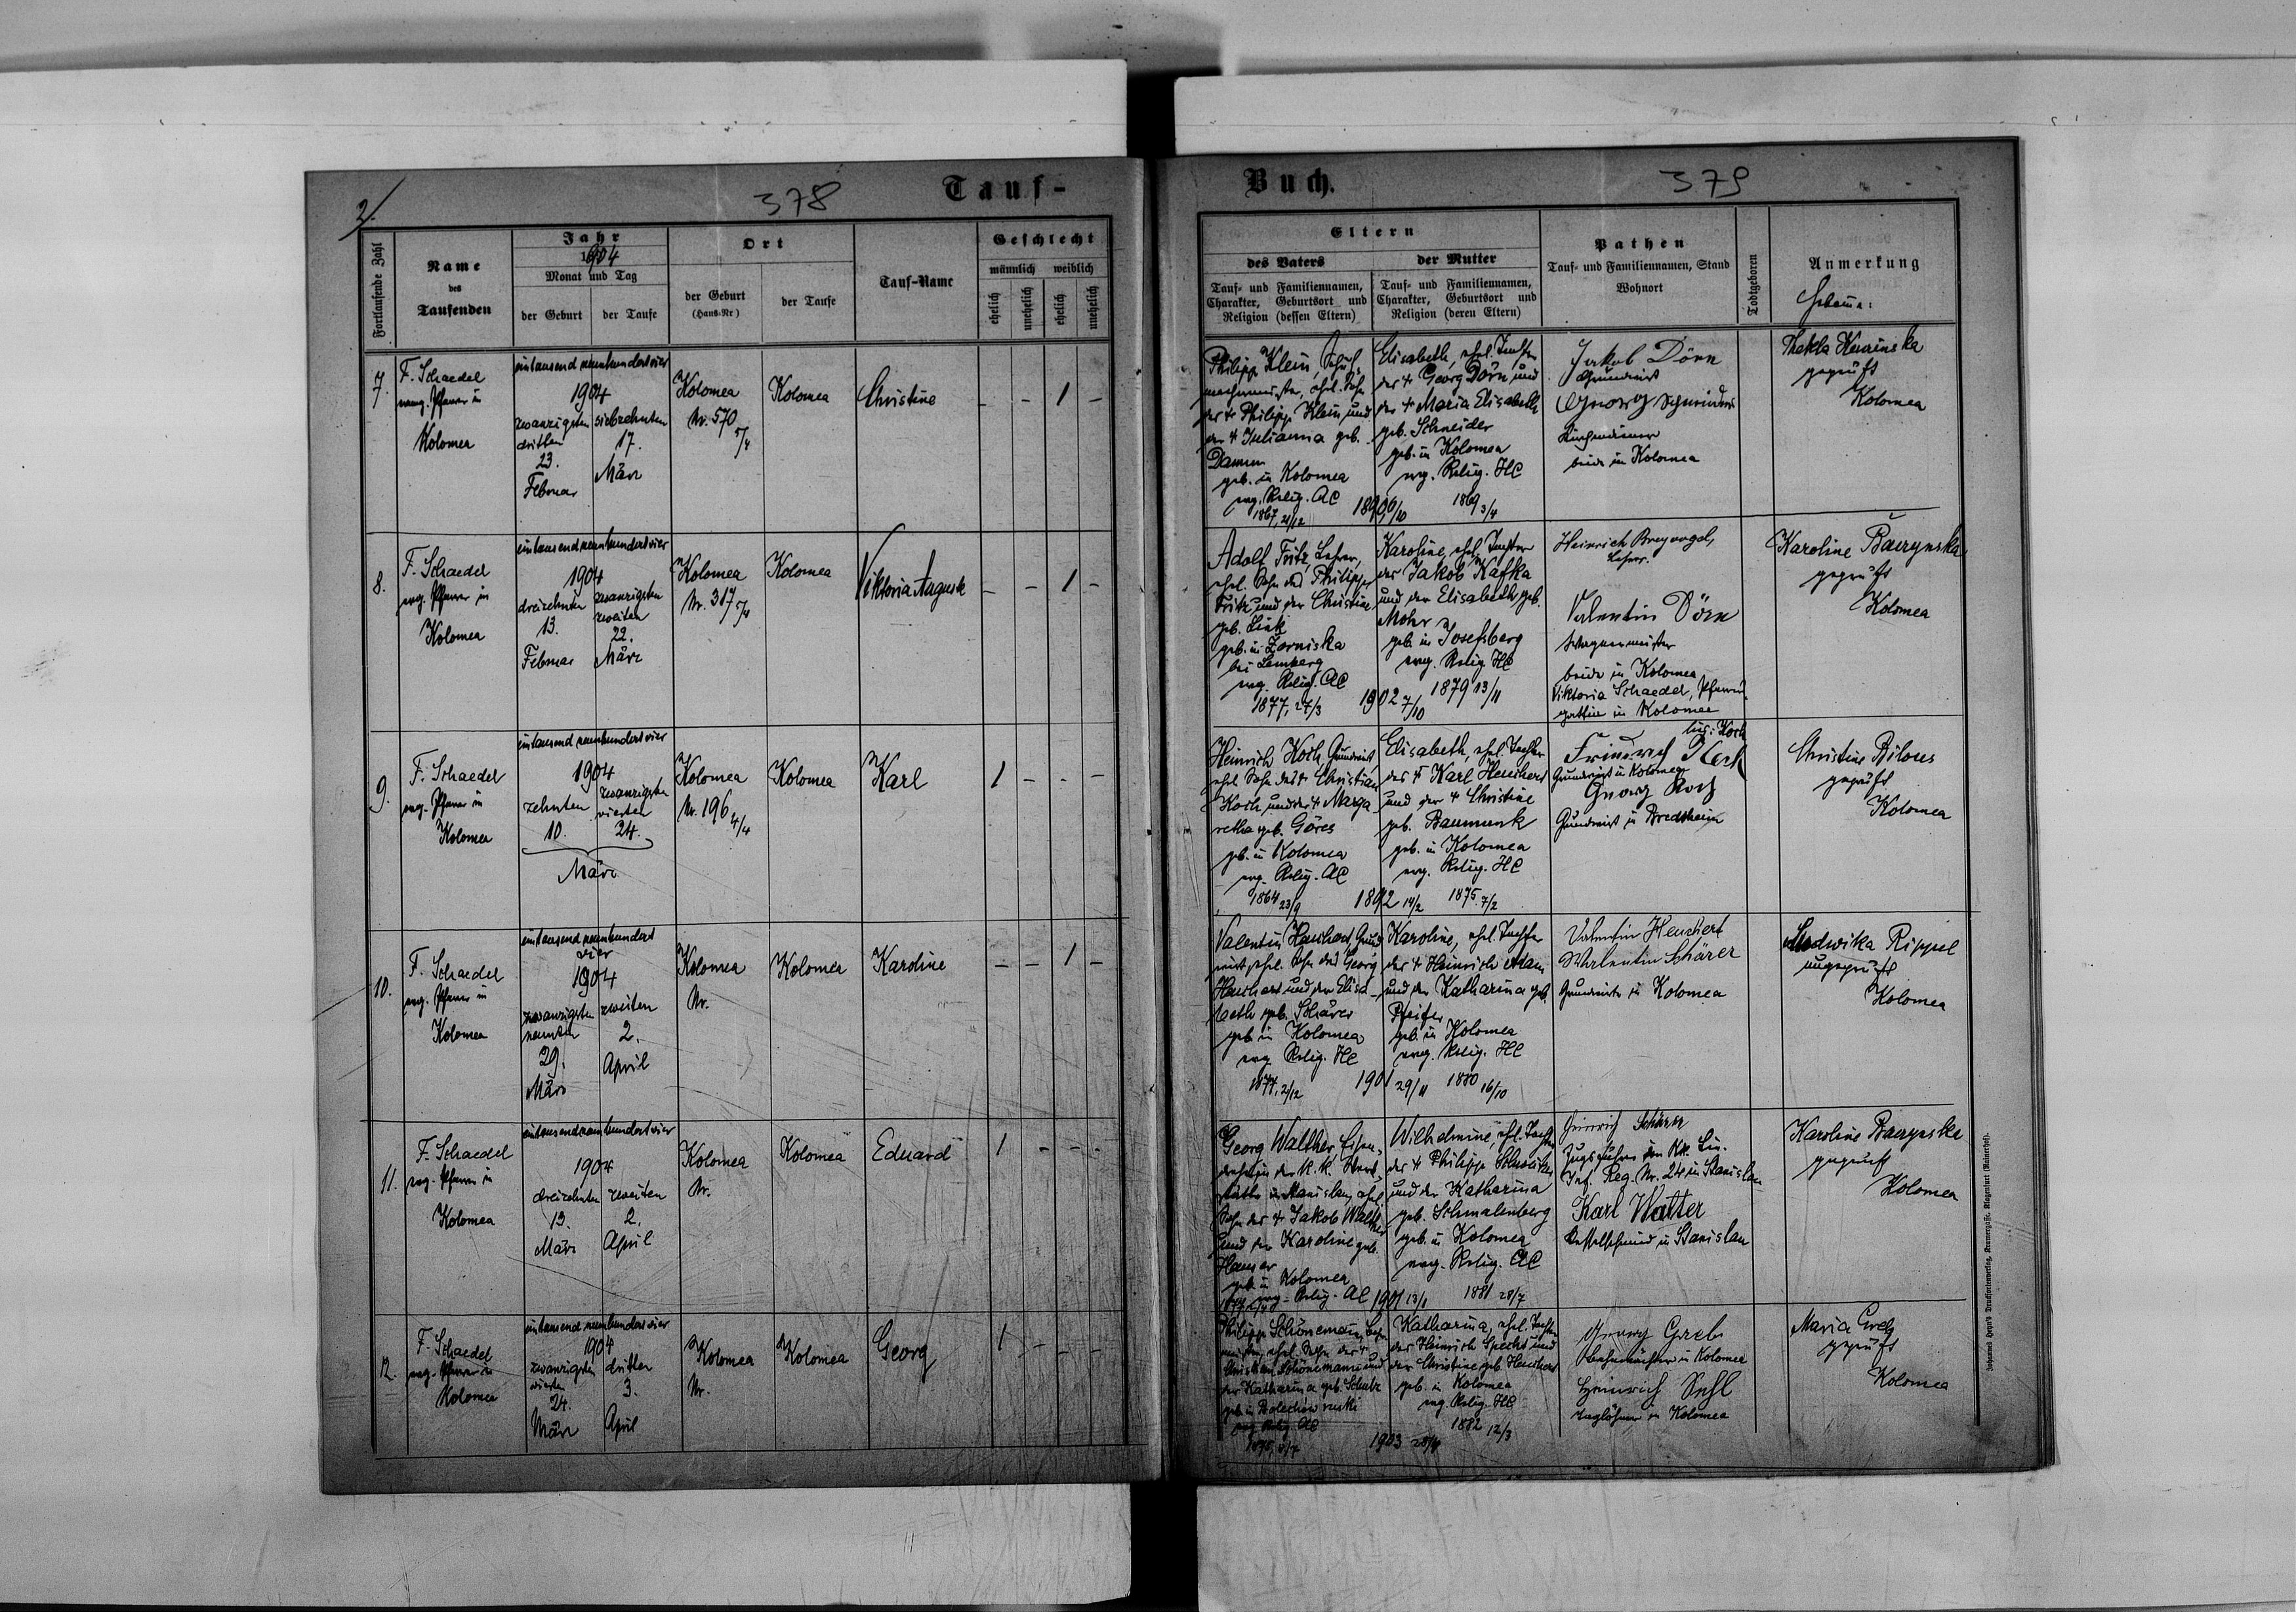 2.
378
Tauf-
Fortlaufende Zahl
Name
des
Taufenden
Jahr
1904
Monat und Tag
der Geburt
der Taufe
Ort
der Geburt
(Haus-Nr)
der Taufe
Tauf-Name
Geschlecht
männlich
weiblich
ehelich
unehelich
ehelich
unehelich
7.
F. Schaedel
evang. Pfarrer in
Kolomea
eintausend neunhundertvier
1904
zwanzigsten
dritten
23.
Februar
siebzehnten
17.
März
Kolomea
Nr. 570
Kolomea
Christine
- - 1 -
8.
F. Schaedel
evg. Pfarrer in
Kolomea
eintausend neunhundertvier
1904
dreizehnten
13.
Februar
zwanzigsten
zweiten
22.
März
Kolomea
Nr. 317
Kolomea
Viktoria Augusta
- - 1 -
9.
F. Schaedel
evg. Pfarrer in
Kolomea
eintausend neunhundertvier
1904
zehnten
10.
zwanzigsten
vierten
24.
März
Kolomea
Nr. 196 4/4
Kolomea
Karl
1 - - -
10.
F. Schaedel
evg. Pfarrer in
Kolomea
eintausend neunhundert
vier
1904
zwanzigsten
neunten
29.
März
zweiten
2.
April
Kolomea
Nr.
Kolomea
Karoline
- - 1 -
11.
F. Schaedel
evg. Pfarrer in
Kolomea
eintausend neunhundertvier
1904
dreizehnten
13.
März
zweiten
2.
April
Kolomea
Nr.
Kolomea
Eduard
1 - - -
12.
F. Schaedel
evg. Pfarrer in
Kolomea
eintausend neunhundertvier
1904
zwanzigsten
vierten
24.
März
dritten
3.
April
Kolomea
Nr.
Kolomea
Georg
1 - - -
Buch.
379
Eltern
des Vaters
Tauf- und Familiennamen,
Charakter, Geburtsort und
Religion (dessen Eltern)
der Mutter
Tauf- und Familiennamen,
Charakter, Geburtsort und
Religion (deren Eltern)
Pathen
Tauf- und Familiennamen, Stand
Wohnort
Todtgeboren
Anmerkung
Hebamme:
Philipp Klein, Schuh-
machermeister, ehel. Sohn
des † Philipp Klein und
der † Julianna geb.
Damm
geb. in Kolomea
evg. Relig. AC
1867, 21/12
Elisabeth, ehel. Tochter
des † Georg Dörn und
der † Maria Elisabeth
geb. Schneider
geb. in Kolomea
evg. Relig. HC
1869 3/4
Jakob Dörn
Grundwirt
Georg Schneider
Kirchendiener
beide in Kolomea
geprüft
Kolomea
Adolf Fritz, Lehrer,
ehel. Sohn des Philipp
Fritz und der Christine
geb. Link
geb. in Zorniska
bei Lemberg
evg. Relig. AC
1877, 27/3
1902 7/10
Karoline, ehel. Tochter
des Jakob Kafka
und der Elisabeth geb.
Mohr
geb. in Josefsberg
evg. Relig. HC
1879 13/11
Heinrich Breyvogel,
Lehrer.
Valentin Dörn
Wagnermeister
beide in Kolomea
Viktoria Schaedel, Pfarrers-
gattin in Kolomea
Karoline Baczynska
geprüft
Kolomea
Heinrich Koch, Grundwirt,
ehel. Sohn des † Christian
Koch und der † Marga-
retha geb. Göres
geb. in Kolomea
evg. Relig. AC
1864 23/9
1892 14/2
Elisabeth, ehel. Tochter
des † Karl Heuchert
und der † Christine
geb. Baumunk
geb. in Kolomea
evg. Relig. HC
1875. 7/2
lies: Koch
Friedrich Koch
Grundwirt in Kolomea
Georg Koch
Grundwirt in Bredtheim
Christine Bilous
geprüft
Kolomea
Valentin Heuchert, Grund-
wirt, ehel. Sohn des Georg
Heuchert und der Elisa-
beth geb. Schärer
geb. in Kolomea
evg. Relig. HC
1877, 2/12
1901 29/11
Karoline, ehel. Tochter
des † Heinrich Adam
und der Katharina geb.
Pfeifer
geb. in Kolomea
evg. Relig. HC
1880 16/10
Valentin Heuchert
Walentin Schärer
Grundwirte in Kolomea
Ludwika Rippel
ungeprüft
Kolomea
Georg Walther, Eisen-
dreher in der k.k. Werk-
stätte in Stanislau, ehel.
Sohn des † Jakob Walther
und der Karoline geb.
Hauser
geb. in Kolomea
evg. Relig. AC
Wilhelmine, ehel. Tochter
des † Philipp
und der Katharina
geb. Schmalenberg
geb. in Kolomea
evg. Relig. AC
1881 28/7
Heinrich Schärer
Zugsführer im kk. Lin.
Inf. Reg. Nr. 24 in Stanislau
Karl Walter
Kesselschmied in Stanislau
Karoline Baczynska
geprüft
Kolomea
Philipp Schönemann,
ehel. Sohn des †
Christian Schönemann und
der Katharina geb. Schulz
geb. in Bolechow ruski
evg. Relig. AC
Katharina, ehel. Tochter
des Heinrich Specht und
der Christine geb. Heuchert
geb. in Kolomea
evg. Relig. HC
1882 12/3
Georg Greb
Bahnwächter in Kolomea
Heinrich Sehl
Taglöhner in Kolomea
Maria Greb
geprüft
Kolomea